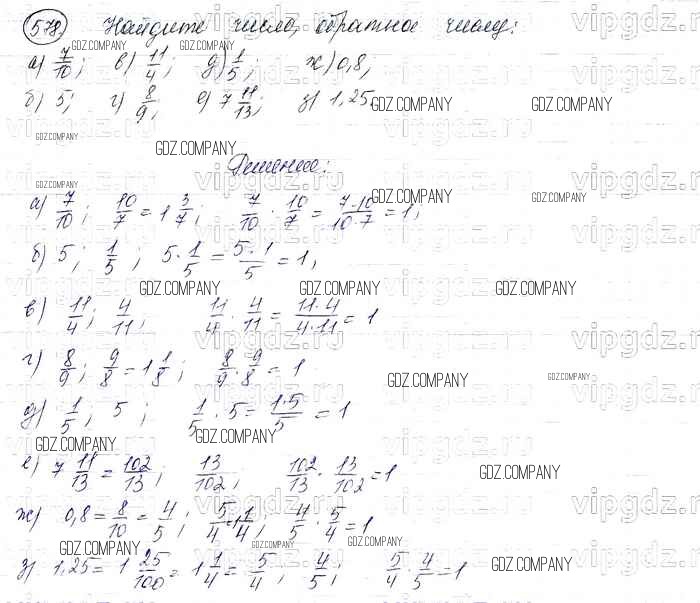 578. Найдите число, обратное числу:
а) 7/10; в) 11/4; д) 1/5; ж) 0,8;
б) 5; г) 8/9; е) 7 11/13; з) 1,25.
Решение:
а) 7/10; 10/7 = 1 3/7; 7/10 · 10/7 = 7·10/10·7 = 1;
б) 5; 1/5; 5 · 1/5 = 5·1/5 = 1;
в) 11/4; 4/11; 11/4 · 4/11 = 11·4/4·11 = 1
г) 8/9; 9/8 = 1 1/8; 8/9 · 9/8 = 1
д) 1/5; 5; 1/5 · 5 = 1·5/5 = 1
е) 7 11/13 = 102/13; 13/102; 102/13 · 13/102 = 1
ж) 0,8 = 8/10 = 4/5; 5/4 = 1 1/4; 4/5 · 5/4 = 1
з) 1,25 = 1 25/100 = 1 1/4 = 5/4; 4/5; 5/4 · 4/5 = 1
GDZ.COMPANY
vipgdz.ru